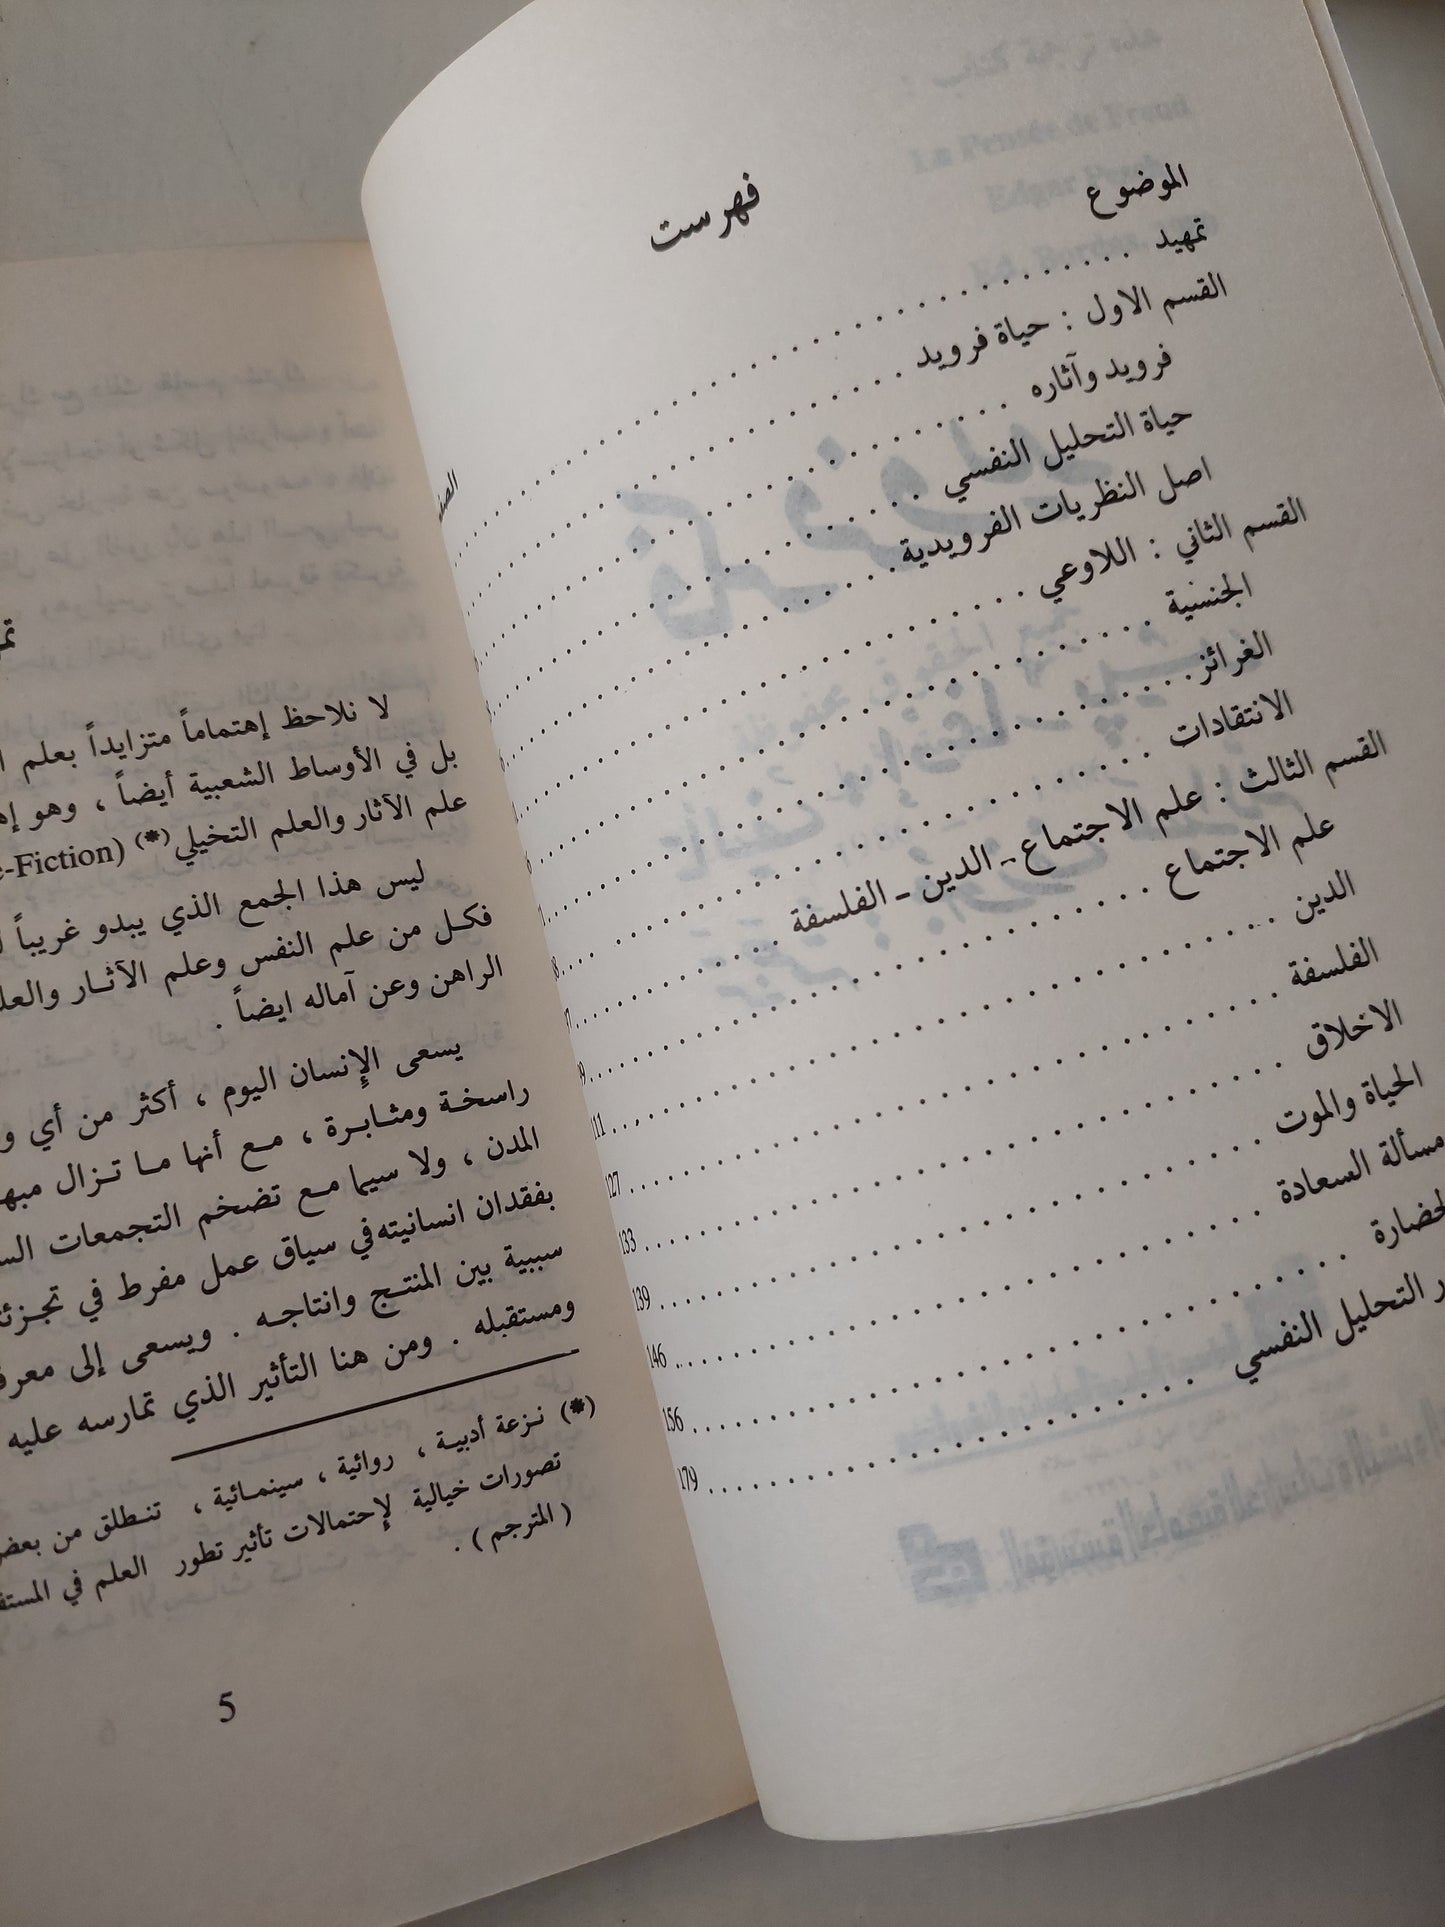 فهرست
الموضوع
تمهيد
القسم الاول : حياة فرويد
فرويد وآثاره
حياة التحليل النفسي
اصل النظريات الفرويدية
القسم الثاني : اللاوعي
الجنسية
الغرائز
الانتقادات
القسم الثالث : علم الاجتماع - الدين - الفلسفة
علم الاجتماع
الدين 111
الفلسفة 127
الاخلاق 133
الحياة والموت 139
مسألة السعادة 146
156
التحليل النفسي 179
لا نلاحظ إهتماماً متزايداً بعلم
بل في الأوساط الشعبية أيضاً ، وهو
علم الآثار والعلم التخيلي (*) (e-Fiction
ليس هذا الجمع الذي يبدو غريباً
فكل من علم النفس وعلم الآثار
الراهن وعن آماله ايضاً .
يسعى الإنسان اليوم ، أكثر من أي
راسخة ومثابرة ، مع أنها ما تزال
المدن ، ولا سيما مع تضخم التجمعات
بفقدان انسانيته في سياق عمل مفرط في
سببية بين المنتج وانتاجه . ويسعى إلى
ومستقبله . ومن هنا التأثير الذي تمارسه عليه
(*) نزعة أدبية ، روائية ، سينمائية ، تنطلق من
تصورات خيالية لإحتمالات تأثير تطور العلم في
( المترجم ) .
5